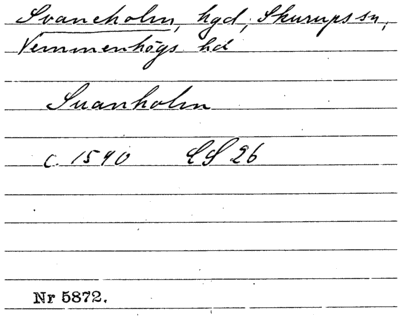 Svaneholm, hgd, Skurups sn,
Vemmenhögs hd
Suanholm
c. 1540 LS 26
Nr 5872.